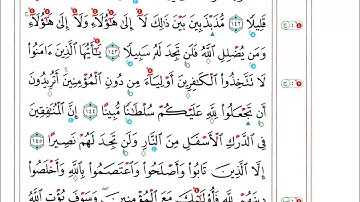 قَلِيلًا ١٤٢ مُّذَبْذَبِينَ بَيْنَ ذَٰلِكَ لَآ إِلَىٰ هَٰٓؤُلَآءِ وَلَآ إِلَىٰ هَٰٓؤُلَآءِ
وَمَن يُضْلِلِ ٱللَّهُ فَلَن تَجِدَ لَهُۥ سَبِيلًا ١٤٣ يَٰٓأَيُّهَا ٱلَّذِينَ ءَامَنُوا۟
لَا تَتَّخِذُوا۟ ٱلْكَٰفِرِينَ أَوْلِيَآءَ مِن دُونِ ٱلْمُؤْمِنِينَ أَتُرِيدُونَ
أَن تَجْعَلُوا۟ لِلَّهِ عَلَيْكُمْ سُلْطَٰنًا مُّبِينًا ١٤٤ إِنَّ ٱلْمُنَٰفِقِينَ
فِى ٱلدَّرْكِ ٱلْأَسْفَلِ مِنَ ٱلنَّارِ وَلَن تَجِدَ لَهُمْ نَصِيرًا ١٤٥
إِلَّا ٱلَّذِينَ تَابُوا۟ وَأَصْلَحُوا۟ وَٱعْتَصَمُوا۟ بِٱللَّهِ وَأَخْلَصُوا۟
دِينَهُمْ لِلَّهِ فَأُو۟لَٰٓئِكَ مَعَ ٱلْمُؤْمِنِينَ وَسَوْفَ يُؤْتِ ٱللَّهُ